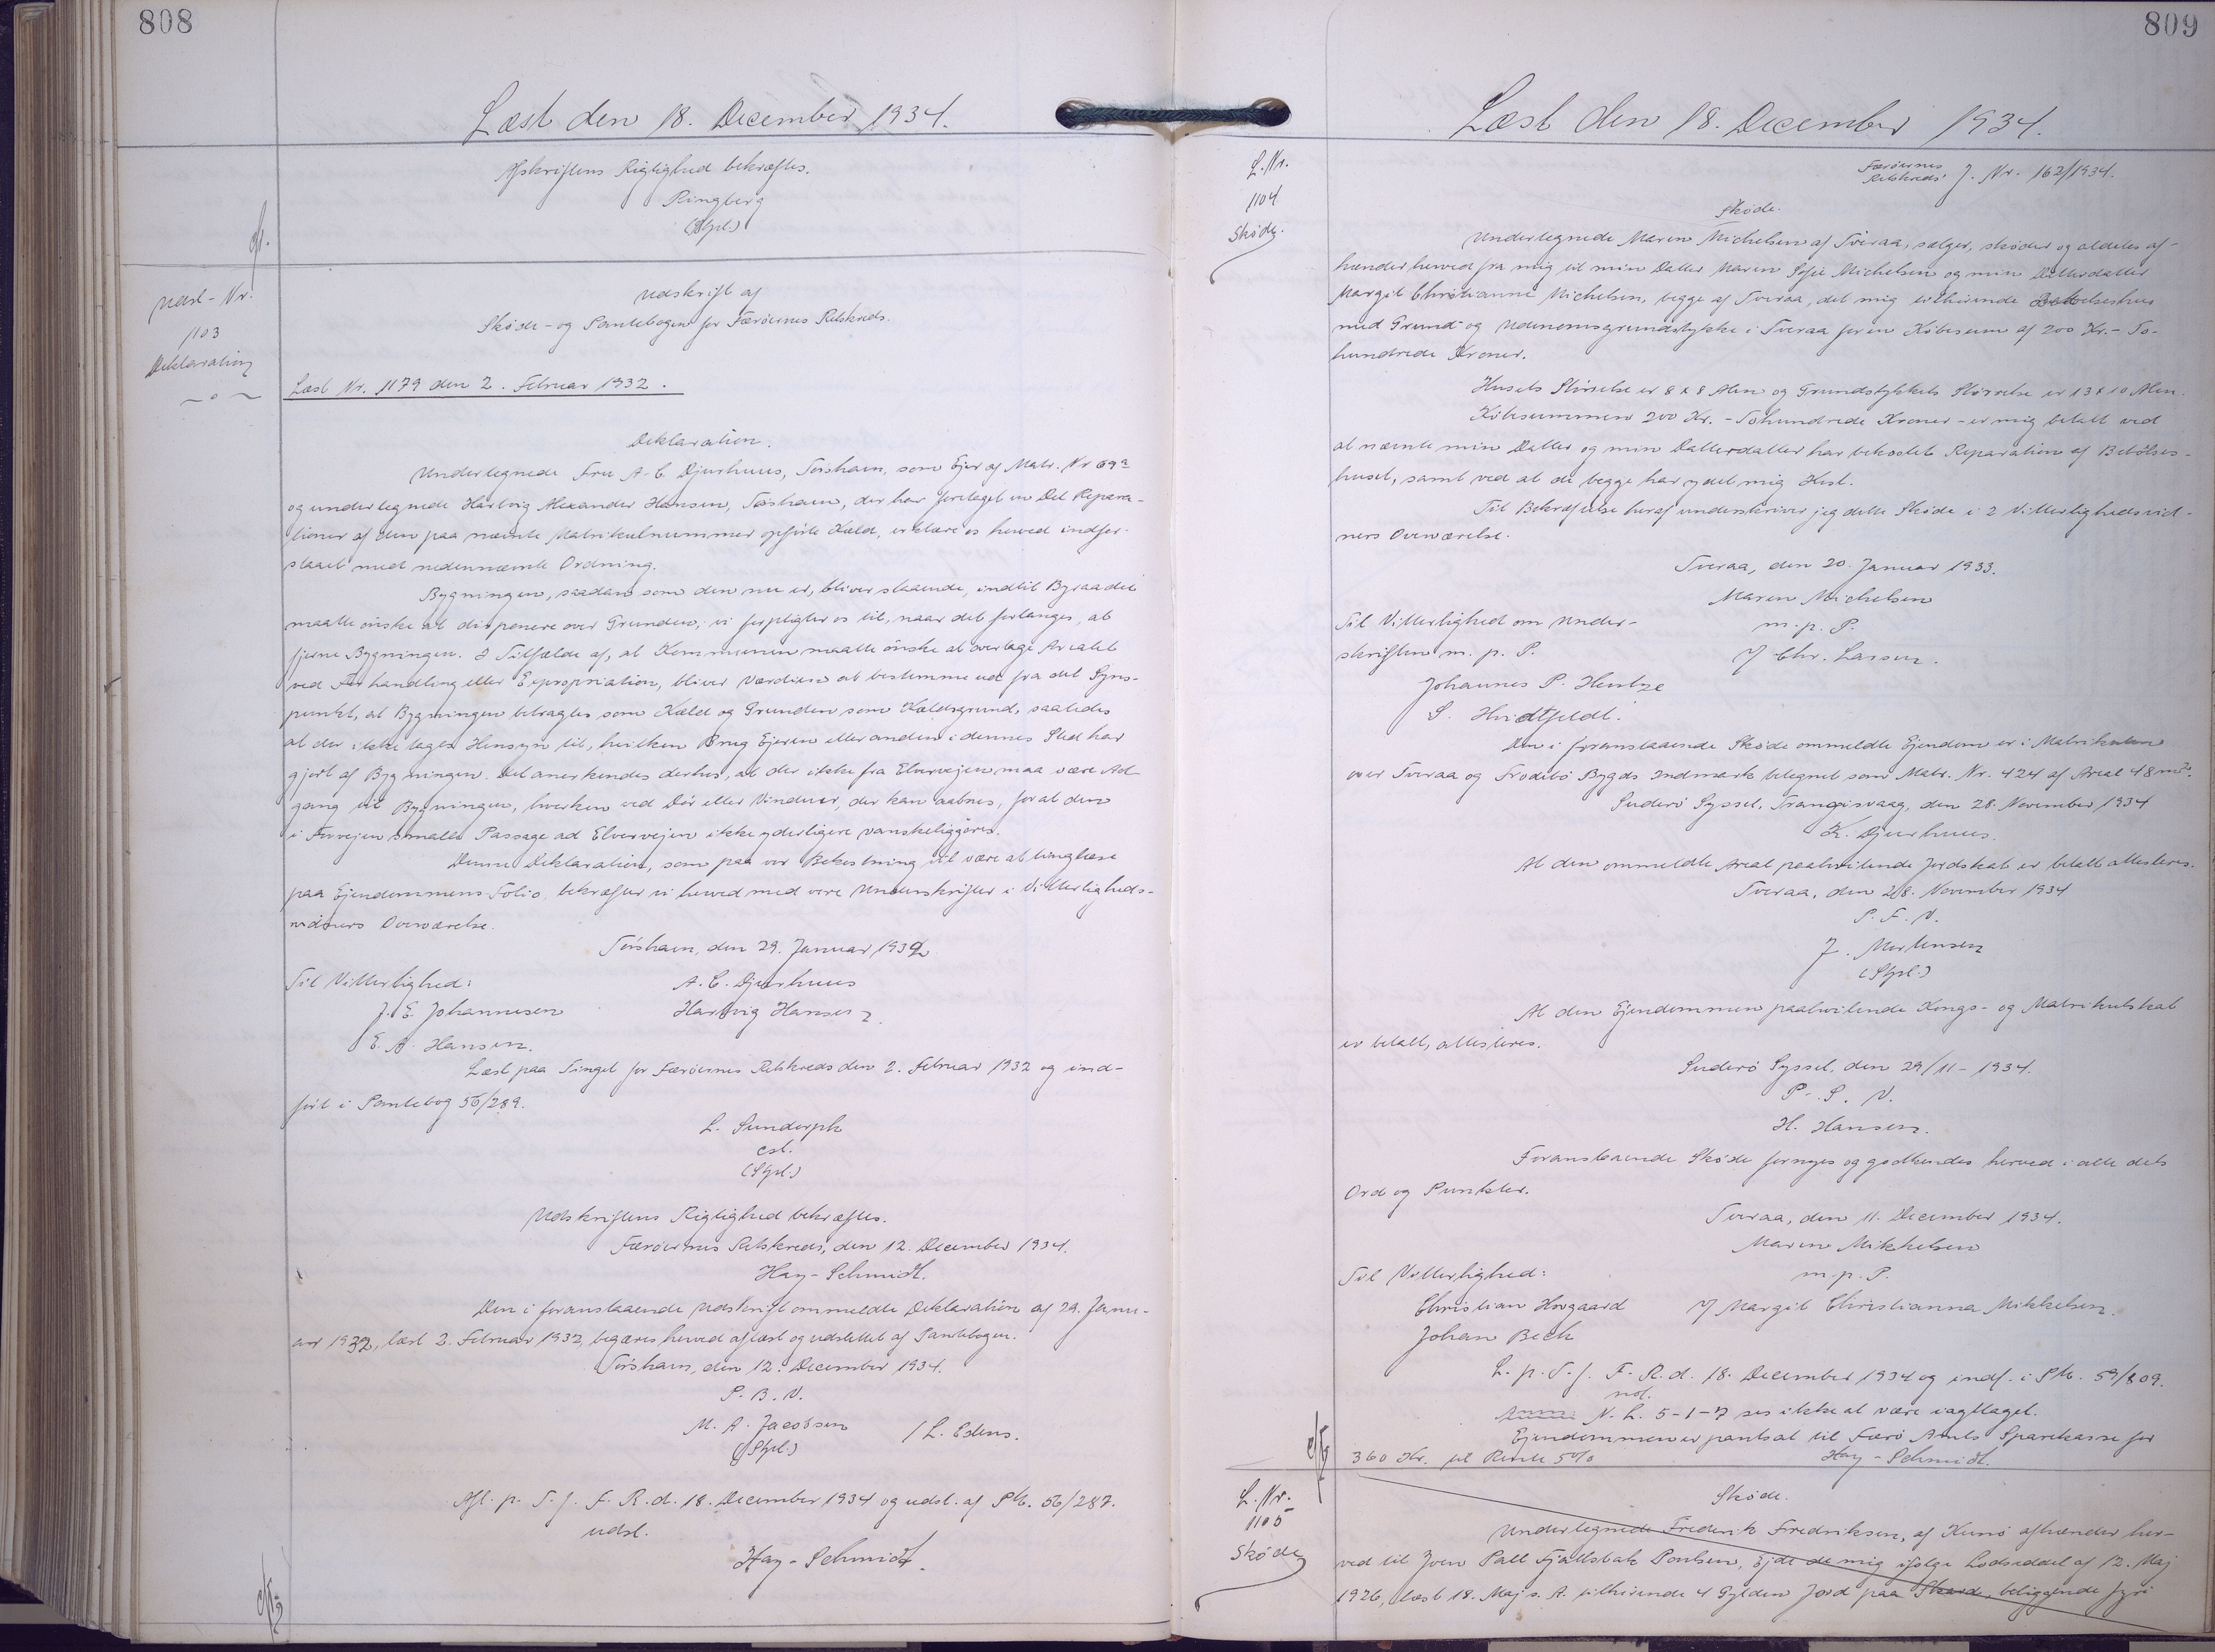 808
Læst den 18. December 1934.
Afskriftens Rigtighed bekræftes.
Ringberg
(Stpl.)
Udsl-Nr.
1103
Deklaration
Udskrift af
Skøde- og Pantebogen for Færøernes Retskreds.
Læst Nr. 1179 den 2. Februar 1932.
Deklaration.
Undertegnede Fru A. C. Djurhuus, Tórshavn, som Ejer af Matr. Nr 69ª
og undertegnede Hartvig Alexander Hansen, Tórshavn, der har foretaget en Del Repara-
tioner af den paa nævnte Matrikulnummer opførte Kæld, erklære os herved indfor-
staaet med nedennævnte Ordning.
Bygningen, saadan som den nu er, bliver staaende, indtil Byraadet
maatte ønske at disponere over Grunden; vi forpligter os til, naar det forlanges, at
fjerne Bygningen. I Tilfælde af, at Kommunen maatte ønske at overtage Arealet
ved Forhandling eller Expropriation, bliver Værdien at bestemme ud fra det Syns-
punkt, at Bygningen betragtes som Kæld og Grunden som Kældsgrund, saaledes
at der ikke tages Hensyn til, hvilken Brug Ejeren eller anden i dennes Sted har
gjort af Bygningen. Det anerkendes derhos, at der ikke fra Elvervejen maa være Ad-
gang til Bygningen, hverken ved Dør eller Vinduer, der kan aabnes, for at den
i Forvejen smalle Passage ad Elvervejen ikke yderligere vanskeliggøres.
Denne Deklaration, som paa vor Bekostning vil være at tinglæse
paa Ejendommens Folio, bekræfter vi herved med vore Underskrifter i Vitterligheds-
vidners Overværelse.
Tórshavn, den 29. Januar 1932
Til Vitterlighed: A. C. Djurhuus
J. E. Johannesen Hartvig Hansen
E. A. Hansen.
Læst paa Tinget for Færøernes Retskreds den 2. Februar 1932 og ind-
ført i Pantebog 56/289.
L. Sunderph
cst.
(Stpl.)
Udskriftens Rigtighed bekræftes.
Færøernes Retskreds, den 12. December 1934.
Hay-Schmidt.
Den i foranstaaende Udskrift ommeldte Deklaration af 29. Janu-
ar 1932, læst 2. Februar 1932, begæres herved aflæst og udslettet af Pantebogen.
Tórshavn, den 12. December 1934.
P. B. V.
M. A. Jacobsen / L. Edens.
(Stpl.)
Afl. p. T. f. F. R. d. 18. December 1934 og udsl. af Ptb. 56/287.
udsl.
Hay-Schmidt.
809
Læst den 18. December 1934.
L. Nr.
1104
Skøde.
Færøernes
Retskreds J. Nr. 162/1934.
Skøde.
Undertegnede Maren Michelsen af Tveraa, sælger, skøder og aldeles af-
hænder herved fra mig til min Datter Maren Sofie Michelsen og min Datterdatter
Margit Christianne Michelsen, begge af Tveraa, det mig tilhørende Beboelseshus
med Grund og Udenomsgrundstykke i Tveraa for en Købesum af 200 Kr. - To-
hundrede Kroner.
Husets Størrelse er 8 x 8 Alen og Grundstykkets Størrelse er 13 x 10 Alen.
Købesummen 200 Kr. - Tohundrede Kroner - er mig betalt ved
at nævnte min Datter og min Datterdatter har bekostet Reparation af Beboelses-
huset, samt ved at de begge har ydet mig Kost.
Til Bekræftelse heraf underskriver jeg dette Skøde i 2 Vitterlighedsvid-
ners Overværelse.
Tveraa, den 20. Januar 1933.
Maren Michelsen
Til Vitterlighed om Under- m. p. P.
skriften m. p. P. / Chr. Larsen.
Johannes P. Hentze
S. Hvidtfeldt.
Den i foranstaaende Skøde ommeldte Ejendom er i Matrikulen
over Tveraa og Frodebø Bygds Indmark betegnet som Matr. Nr. 424 af Areal 48 m².
Suderø Syssel, Trangisvaag, den 28. November 1934
K. Djurhuus.
At den ommeldte Areal paahvilende Jordskat er betalt attesteres.
Tveraa, den 28. November 1934
P. F. V.
J. Mortensen
(Stpl.)
At den Ejendommen paahvilende Kongs- og Matrikulskat
er betalt, attesteres.
Suderø Syssel, den 29/11-1934.
P. S. V.
H. Hansen.
Foranstaaende Skøde fornyes og godkendes herved i alle dets
Ord og Punkter.
Tveraa, den 11. December 1934.
Maren Mikkelsen
Til Vitterlighed: m. p. P.
Christian Hovgaard / Margit Christianna Mikkelsen.
Johan Bech
L. p. T. f. F. R. d. 18. December 1934 og indf. i Ptb. 59/809.
not.
N. L. 5-1-7 ses ikke at være iagttaget.
Ejendommen er pantsat til Færø Amts Sparekasse for
360 Kr. til Rente 5% Hay-Schmidt.
L. Nr.
1105
Skøde
Skøde.
Undertegnede Frederik Fredriksen, af Kunø afhænder her-
ved til Joen Pall Fjallsbak Poulsen, Ejde de mig ifølge Lodseddel af 12. Maj
1926, læst 18. Maj s. A. tilhørende 4 Gylden Jord paa Skarde, beliggende syv